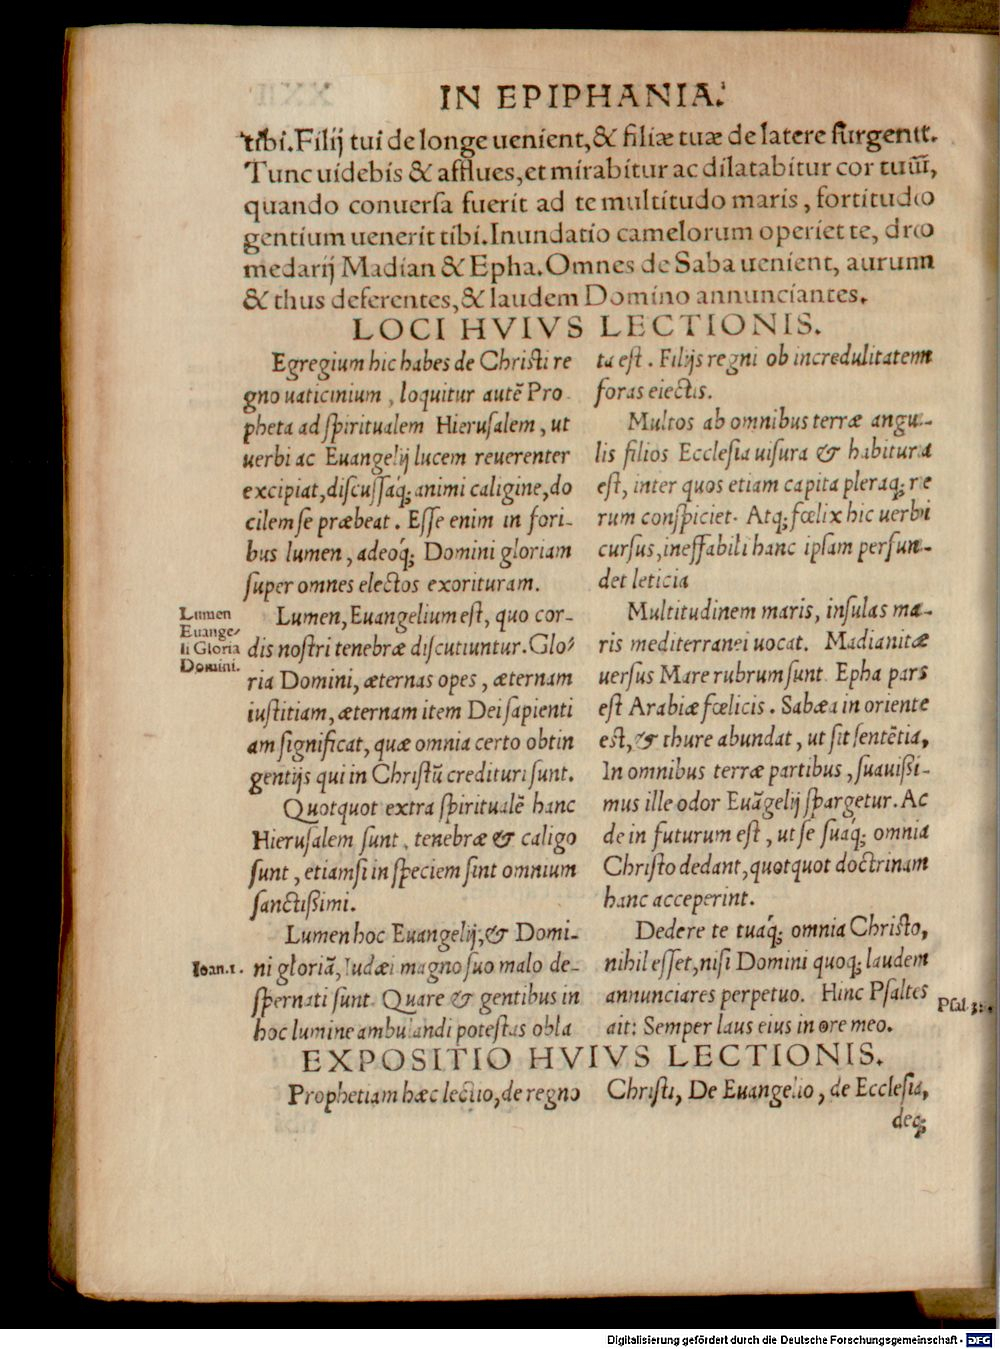 IN EPIPHANIA.
tibi. Filij tui de longe uenient, & filiæ tuæ de latere surgent.
Tunc uidebis & afflues, et mirabitur ac dilatabitur cor tuũ,
quando conuersa fuerit ad te multitudo maris, fortitudo
gentium uenerit tibi. Inundatio camelorum operiet te, dro
medarij Madian & Epha. Omnes de Saba uenient, aurum
& thus deferentes, & laudem Domino annunciantes.
LOCI HVIVS LECTIONIS.
Egregium hic habes de Christi re
gno uaticinium, loquitur autẽ Pro-
pheta ad spiritualem Hierusalem, ut
uerbi ac Euangelij lucem reuerenter
excipiat, discussaq́; animi caligine, do
cilem se præbeat. Esse enim in fori-
bus lumen, adeoq́; Domini gloriam
super omnes electos exorituram.
Lumen
Euange/
li Gloria
Domini.
Lumen, Euangelium est, quo cor-
dis nostri tenebræ discutiuntur. Glo/
ria Domini, æternas opes, æternam
iustitiam, æternam item Dei sapienti
am significat, quæ omnia certo obtin
gentijs qui in Christũ credituri sunt.
Quotquot extra spiritualẽ hanc
Hierusalem sunt, tenebræ & caligo
sunt, etiamsi in speciem sint omnium
sanctißimi.
Ioan.1.
Lumen hoc Euangelij, & Domi-
ni gloriã, Iudæi magno suo malo de-
spernati sunt. Quare & gentibus in
hoc lumine ambulandi potestas obla
ta est. Filijs regni ob incredulitatem
foras eiectis.
Multos ab omnibus terræ angu-
lis filios Ecclesia uisura & habitura
est, inter quos etiam capita pleraq; re
rum conspiciet. Atq; fœlix hic uerbi
cursus, ineffabili hanc ipsam perfun-
det leticia
Multitudinem maris, insulas ma-
ris mediterranei uocat. Madianitæ
uersus Mare rubrum sunt. Epha pars
est Arabiæ fœlicis. Sabæa in oriente
est, & thure abundat, ut sit sentẽtia,
In omnibus terræ partibus, suauißi-
mus ille odor Euãgelij spargetur. Ac
de in futurum est, ut se suaq́; omnia
Christo dedant, quotquot doctrinam
hanc acceperint.
Dedere te tuaq́; omnia Christo,
nihil esset, nisi Domini quoq; laudem
annunciares perpetuo. Hinc Psaltes
ait: Semper laus eius in ore meo.
EXPOSITIO HVIVS LECTIONIS.
Prophetiam hæc lectio, de regno
Christi, De Euangelio, de Ecclesia,
deq;
Digitalisierung gefördert durch die Deutsche Forschungsgemeinschaft - DFG